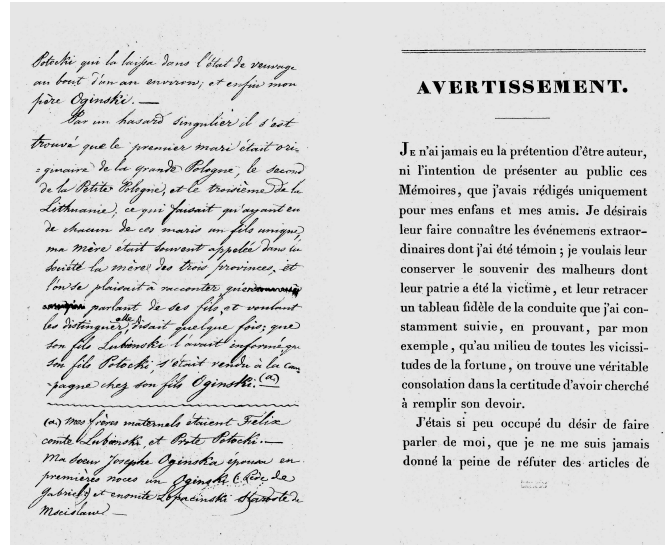 Potocki qui la laissa dans l'état de veuvage
au bout d'un an environ; et enfin mon
père Oginski. —
Par un hasard singulier il s'est
trouvé que le premier mari était ori-
=ginaire de la grande Pologne, le second
de la Petite Pologne, et le troisième de la
Lithuanie, ce qui faisait qu'ayant eu
de chacun de ces maris un fils unique,
ma mère était souvent appelée dans la
société la mère des trois provinces, et
l'on se plaisait à raconter qu'
parlant de ses fils, et voulant
les distinguer, elle disait quelque fois; que
son fils Lubienski l'avait informé que
son fils Potocki, s'était rendu à la cam
-pagne chez son fils Oginski. (a)
(a) mes frères maternels étaient Félix
comte Lubienski, et Prote Potocki. —
Ma Soeur Josephe Oginska épousa en
premières noces un Oginski
Gabriel) et ensuite Lopacinski Staroste de
Mscislaw —
AVERTISSEMENT.
JE n'ai jamais eu la prétention d'être auteur,
ni l'intention de présenter au public ces
Mémoires, que j'avais rédigés uniquement
pour mes enfans et mes amis. Je désirais
leur faire connaître les événemens extraor-
dinaires dont j'ai été témoin ; je voulais leur
conserver le souvenir des malheurs dont
leur patrie a été la victime, et leur retracer
un tableau fidèle de la conduite que j'ai con-
stamment suivie, en prouvant, par mon
exemple, qu'au milieu de toutes les vicissi-
tudes de la fortune, on trouve une véritable
consolation dans la certitude d'avoir cherché
à remplir son devoir.
J'étais si peu occupé du désir de faire
parler de moi, que je ne me suis jamais
donné la peine de réfuter des articles de